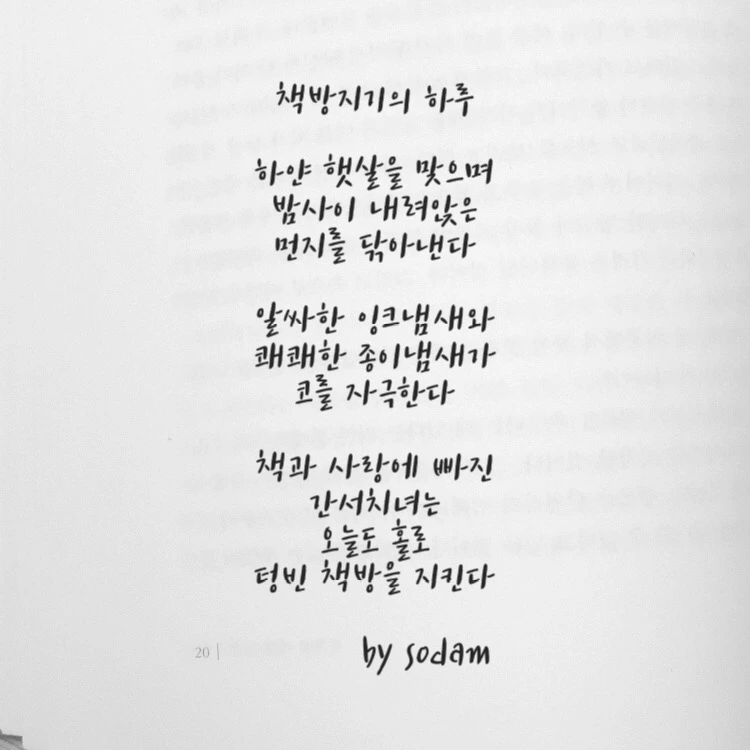 책방지기의 하루
하얀 햇살을 맞으며
밤사이 내려앉은
먼지를 닦아낸다
알싸한 잉크냄새와
쾌쾌한 종이냄새가
코를 자극한다
책과 사랑에 빠진
간서치녀는
오늘도 홀로
텅빈 책방을 지킨다
by sodam
20 |